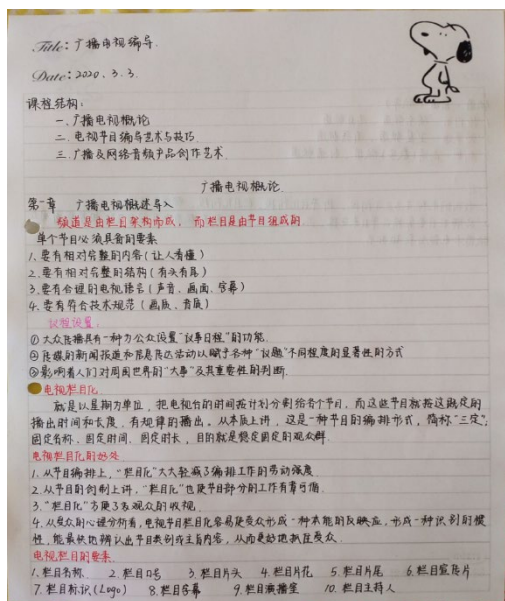 Title: 广播电视编导.
Date: 2020.3.3.
课程结构:
一、广播电视概论
二、电视节目编导艺术与技巧.
三、广播及网络音频产品创作艺术.
广播电视概论.
第一章 广播电视概述导入
频道是由栏目架构而成, 而栏目是由节目组成的.
单个节目必须具备的要素
1、要有相对完整的内容(让人看懂)
2.要有相对完整的结构(有头有尾)
3.要有合理的电视语言(声音、画面、字幕)
4.要有符合技术规范(画质、音质)
议程设置:
①大众传播具有一种为公众设置"议事日程"的功能.
②传媒的新闻报道和信息传达活动以赋予各种"议题"不同程度的显著性的方式
③影响着人们对周围世界的"大事"及其重要性的判断.
电视栏目化.
就是以星期为单位,把电视台的时间按计划分割给各个节目,而这些节目就按这既定的
播出时间和长度,有规律的播出。从本质上讲,这是一种节目的编排形式,简称"三定":
固定名称、固定时间、固定时长,目的就是稳定固定的观众群.
电视栏目化的好处
1.从节目编排上,"栏目化"大大轻减了编排工作的劳动强度
2.从节目的创制上讲,"栏目化"也使节目部分的工作有章可循.
3."栏目化"方便了多观众的收视.
4.从受众的心理分析看,电视节目栏目化容易使受众形成一种本能的反映应,形成一种识别的惯
性,能最快地辨认出节目类别或主旨内容,从而更好地抓住受众.
电视栏目的要素.
1.栏目名称. 2.栏目口号 3.栏目片头 4.栏目片花 5.栏目片尾 6.栏目宣传片
7.栏目标识(Logo) 8.栏目字幕 9.栏目演播室 10.栏目主持人